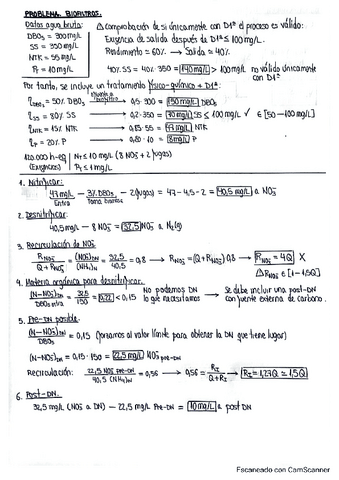 PROBLEMA BIOFILTROS.
Datos agua bruta:
DBO5 = 300 mg/L
SS = 350 mg/L
NTK = 55 mg/L
PT = 10 mg/L
△ Comprobación de si únicamente con D1ª el proceso es válido:
Exigencia de salida después de D1ª SS ≤ 100 mg/L
Rendimiento = 60% → Salida = 40%
40% SS = 40% · 350 = 140 mg/L > 100 mg/L no válido únicamente con D1ª
Por tanto, se incluye un tratamiento físico-químico + D1ª:
ηDBO5 = 50% DBO5 → 0,5 · 300 = 150 mg/L DBO5
ηSS = 80% SS → 0,2 · 350 = 70 mg/L SS ≤ 100 mg/L ✓ ∈ [50-100 mg/L]
ηNTK = 15% NTK → 0,85 · 55 = 47 mg/L NTK
ηP = 20% P → 0,80 · 10 = 8 mg/L P
120.000 h-eq (Exigencias)
NT ≤ 10 mg/L (8 NO3⁻ + 2 fugas)
PT ≤ 1 mg/L
1. Nitrificar:
47 mg/L - 3% DBO5 - 2 (fugas) = 47 - 4,5 - 2 = 40,5 mg/L a NO3⁻
Entra
2. Desnitrificar:
40,5 mg/L - 8 NO3⁻ = 32,5 NO3⁻ a N2(g)
3. Recirculación de NO3⁻
RNO3⁻ / (Q + RNO3⁻) = (NO3⁻)DN / (NH4)N = 32,5 / 40,5 = 0,8 → RNO3⁻ = (Q + RNO3⁻) 0,8 → RNO3⁻ = 4Q X
△ RNO3⁻ ∈ [1 - 1,5Q]
4. Materia orgánica para desnitrificar:
(N-NO3⁻)DN / DBO5 entra = 32,5 / 150 = 0,22 < 0,15 No podemos DN lo que necesitamos → Se debe incluir una post-DN con fuente externa de carbono.
5. Pre-DN posible.
(N-NO3⁻)DN / DBO5 = 0,15 (forzamos al valor límite para obtener la DN que tiene lugar)
(N-NO3⁻)DN = 0,15 · 150 = 22,5 mg/L NO3⁻ pre-DN
Recirculación: 22,5 NO3⁻ pre-DN / 40,5 (NH4)N = 0,56 → 0,56 = RI / (Q + RI) → RI = 1,27Q ≈ 1,5Q
6. Post-DN.
32,5 mg/L (NO3⁻ a DN) - 22,5 mg/L pre-DN = 10 mg/L a post DN
Escaneado con CamScanner